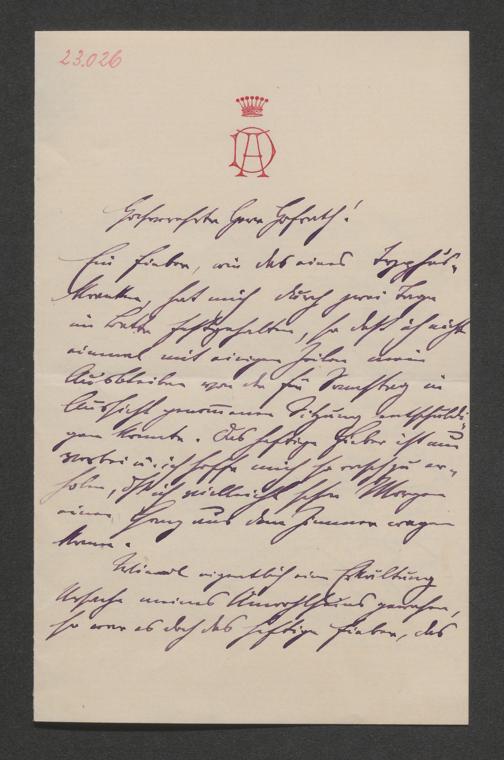 23.026
Hochverehrter Herr Hofrath!
Ein Fieber, wie das eines Typhus-
Kranken, hat mich durch zwei Tage
im Bette festgehalten, so daß ich nicht
einmal mit einigen Zeilen mein
Ausbleiben von der für Samstag in
Aussicht genommenen Sitzung entschuldi-
gen konnte. Das heftige Fieber ist nun
vorbei u. ich hoffe mich so rasch zu er-
holen, daß ich vielleicht schon Morgen
einen Gang aus dem Zimmer wagen
kann.
Wiewol eigentlich eine Erkältung
Ursache meines Unwohlseins gewesen,
so war es doch das heftige Fieber, das